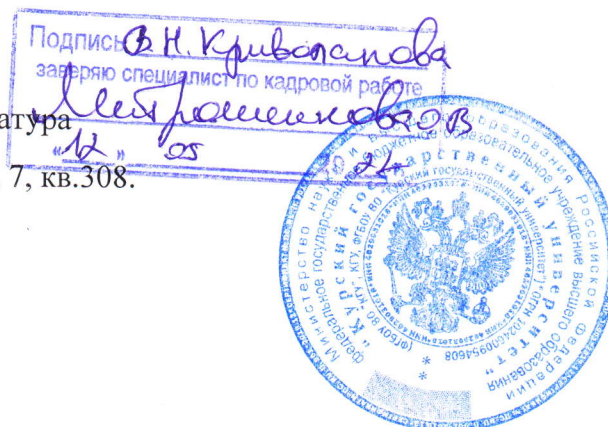 Подпись В.Н. Кривопапова
заверяю специалист по кадровой работе
Митрошенкова О В
атура
"12" 05
7, кв.308.
Министерство науки и высшего образования Российской Федерации
федеральное государственное бюджетное образовательное учреждение высшего образования
"Курский государственный университет"
(ФГБОУ ВО "КГУ", КГУ, ФГБОУ ВО "Курский государственный университет") ОГРН 1024600954608